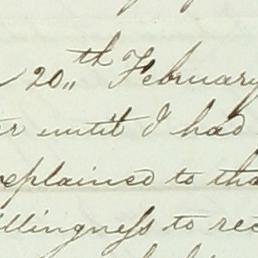 20th February
until I had
explained to tha
illingness to rec